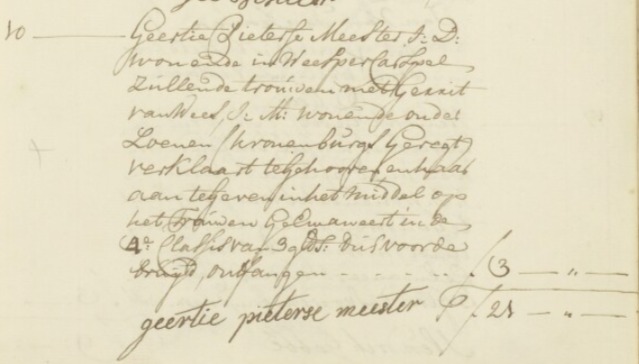 10 — Geertie Pieterse Meester J: D:
wonende in Weesper Carspel
Zullende trouwen met Gerrit
van Wees, J: M: wonende onder
Loenen (kronenburgs Geregt)
verklaart te gehooren en haar
aan te geven in het middel op
het Trouwen Gelyk in de
4e Classis van 3 gds: Dus voor de
bruijd, ontfangen - - - - - ƒ 3 — „ —
geertie pieterse meester ƒ 21 — „ —